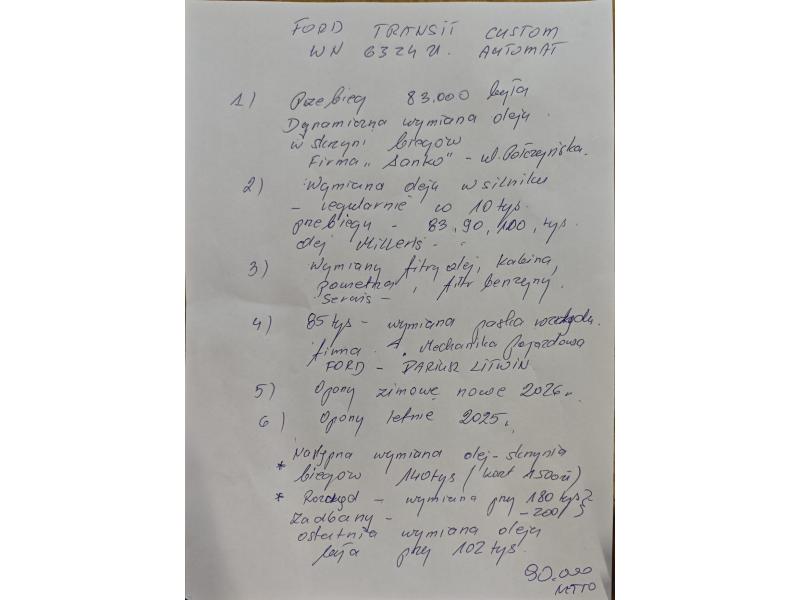 FORD TRANSIT CUSTOM
WN 6324U. AUTOMAT
1) Przebieg 83.000 była
Dynamiczna wymiana oleju
w skrzyni biegów
Firma „Sonko" - ul. Połczyńska.
2) Wymiana oleju w silniku
- regularnie co 10 tys.
przebiegu - 83, 90, 100, tys.
olej Millers -
3) Wymiany filtry olej, kabina,
powietrza, filtr benzyny,
Serwis -
4) 85 tys - wymiana paska rozrządu.
firma Mechanika Pojazdowa
FORD - DARIUSZ LITWIN
5) Opony zimowe nowe 2026r.
6) Opony letnie 2025r.
* Następna wymiana olej-skrzynia
biegów 140tys (koszt 1500zł)
* Rozrząd - wymiana przy 180 tys
Zadbany - - 200
ostatnia wymiana oleju
była przy 102 tys.
90.000
NETTO